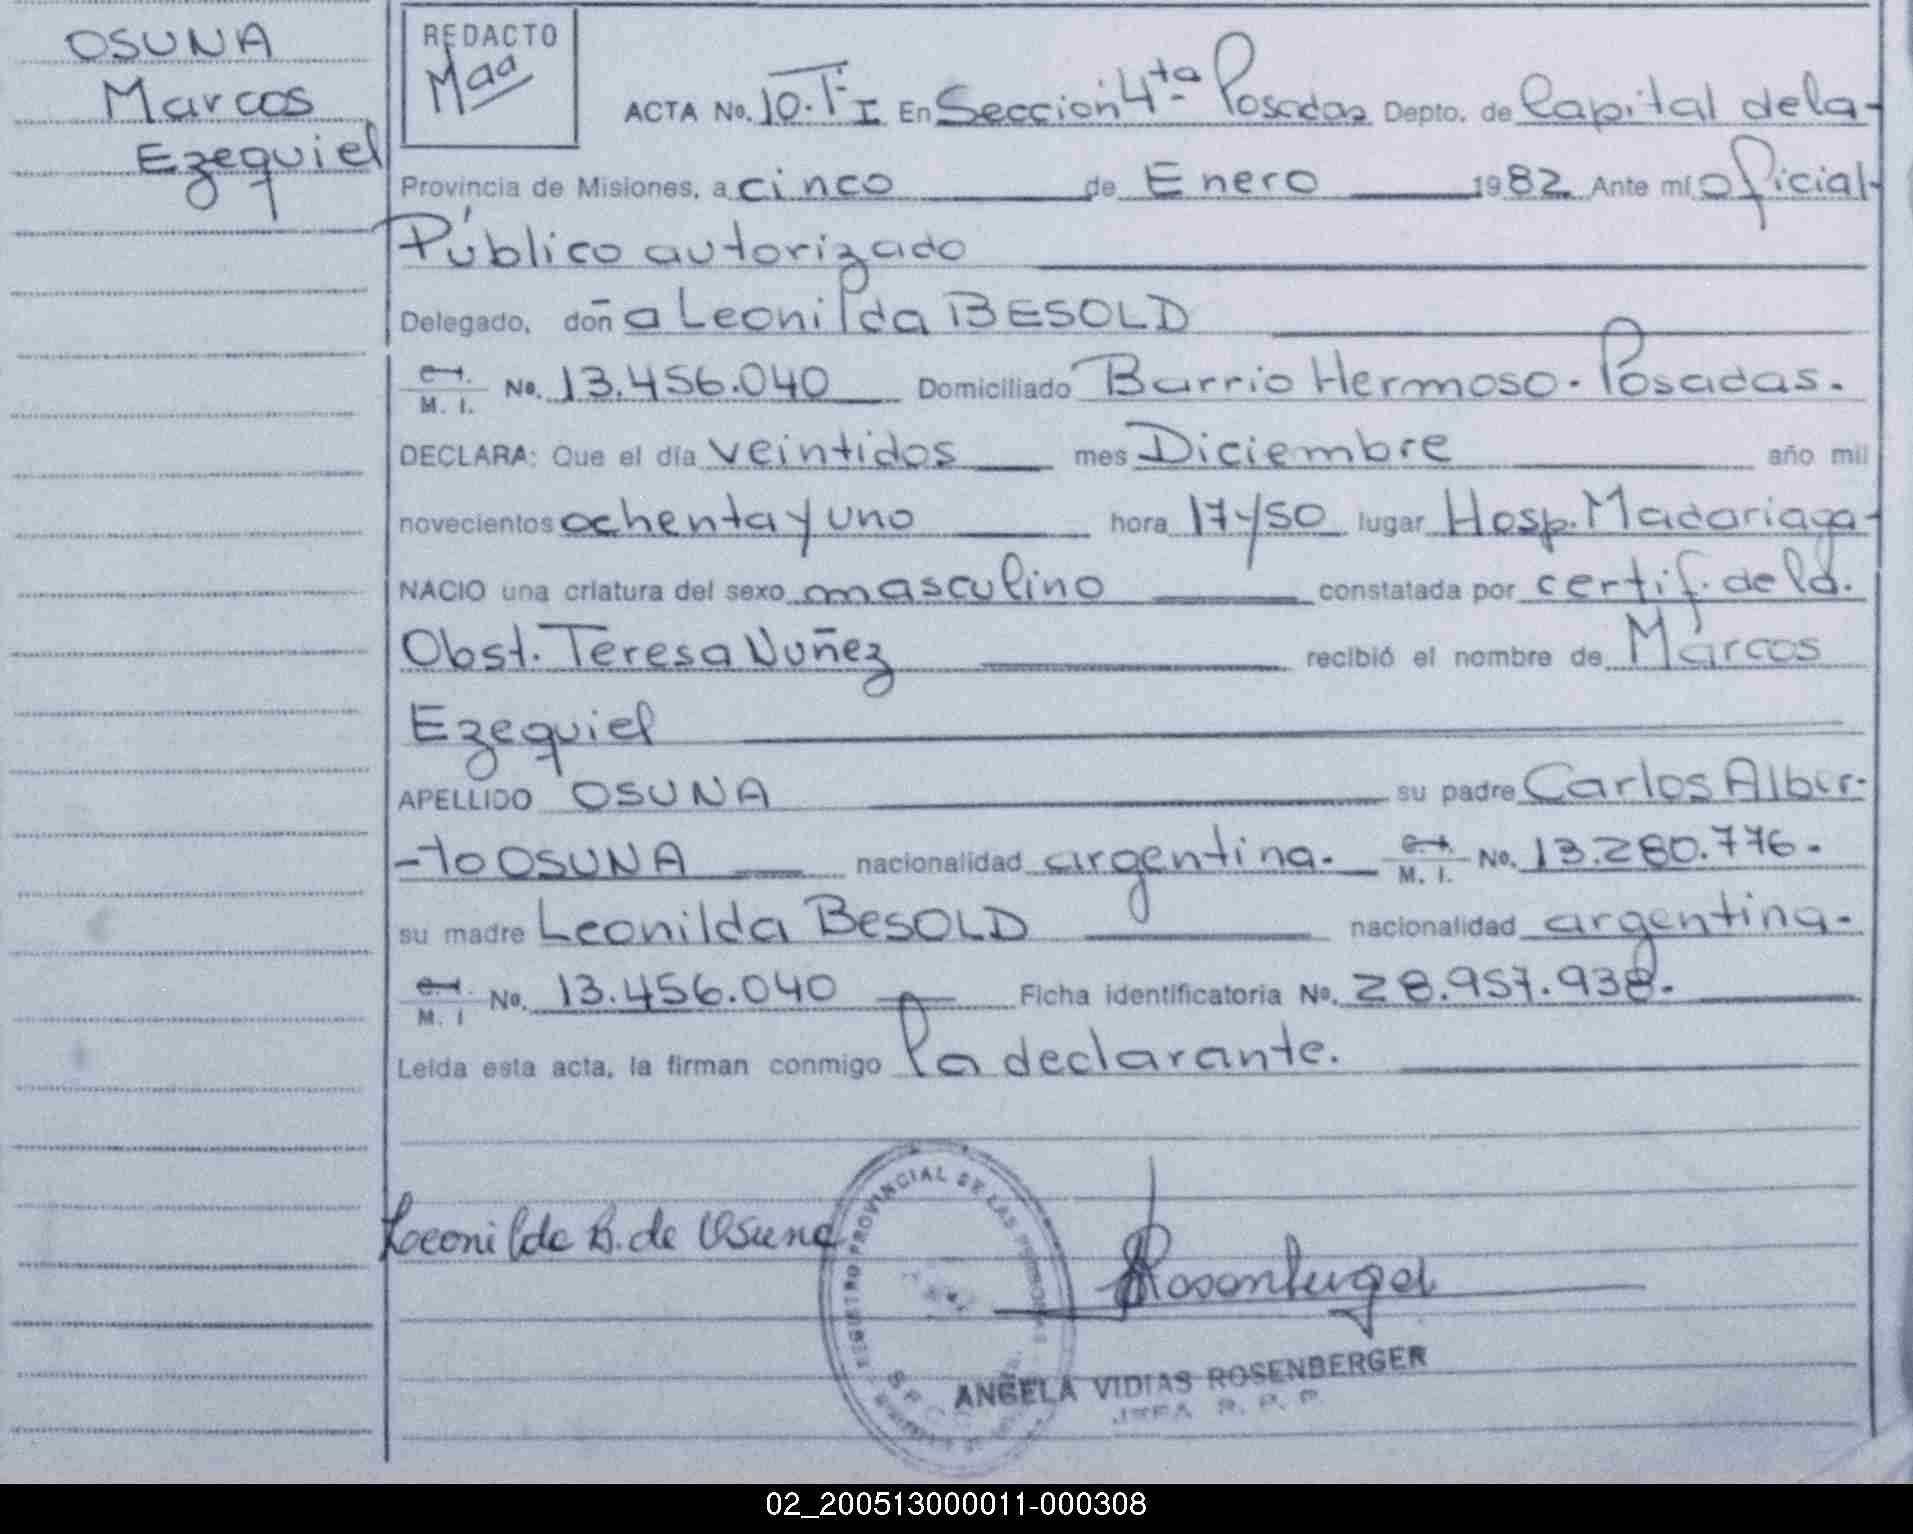 OSUNA
Marcos
Ezequiel
REDACTO
Maa
ACTA No. 10. Tº I En Sección 4ta Posadas Depto. de Capital de la-
Provincia de Misiones, a cinco de Enero 1982 Ante mí oficial-
Público autorizado
Delegado, doña Leonilda BESOLD
M. I. No. 13.456.040 Domiciliado Barrio Hermoso. Posadas.
DECLARA: Que el día veintidos mes Diciembre año mil
novecientos ochenta y uno hora 17 y 50 lugar Hosp. Madariaga-
NACIO una criatura del sexo masculino constatada por certif. de la.
Obst. Teresa Nuñez recibió el nombre de Marcos
Ezequiel
APELLIDO OSUNA su padre Carlos Alber-
-to OSUNA nacionalidad argentina. M. I. No. 13.280.776.
su madre Leonilda BESOLD nacionalidad argentina.
M. I No. 13.456.040 Ficha identificatoria No. 28.957.938.
Leída esta acta, la firman conmigo la declarante.
Leonilda B. de Osuna
REGISTRO PROVINCIAL DE LAS PERSONAS
ANGELA VIDIAS ROSENBERGER
JEFA R. P. P.
02_200513000011-000308